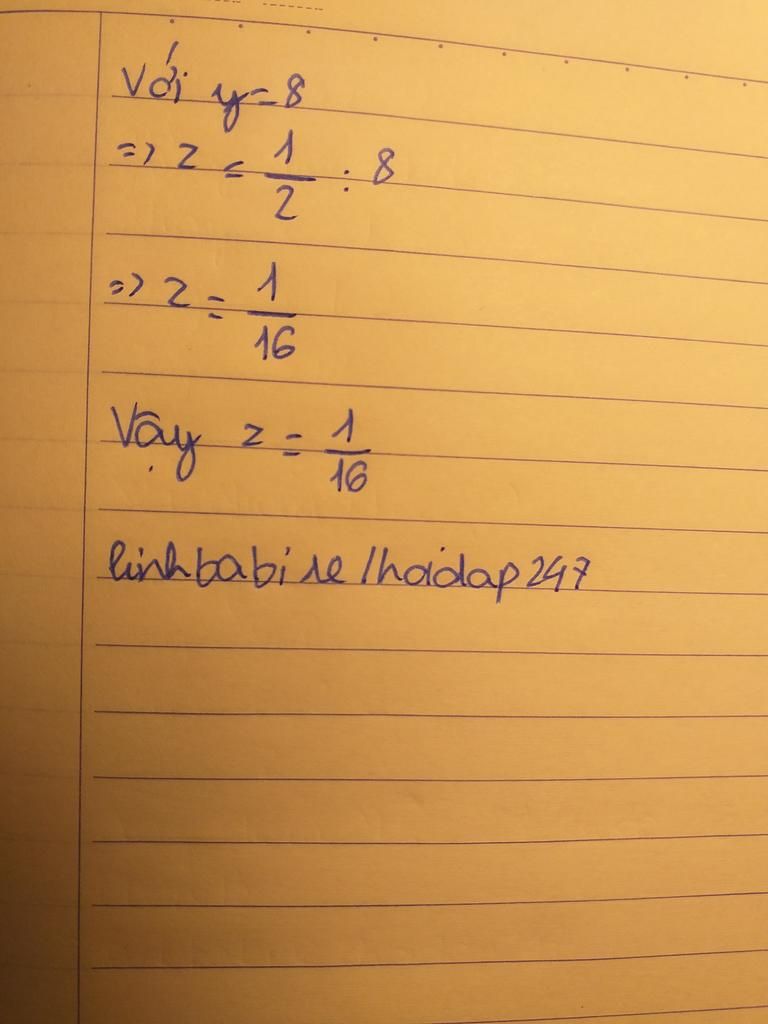 Với y = 8
=> z = 1/2 : 8
=> z = 1/16
Vậy z = 1/16
linhbabi /hoidap247